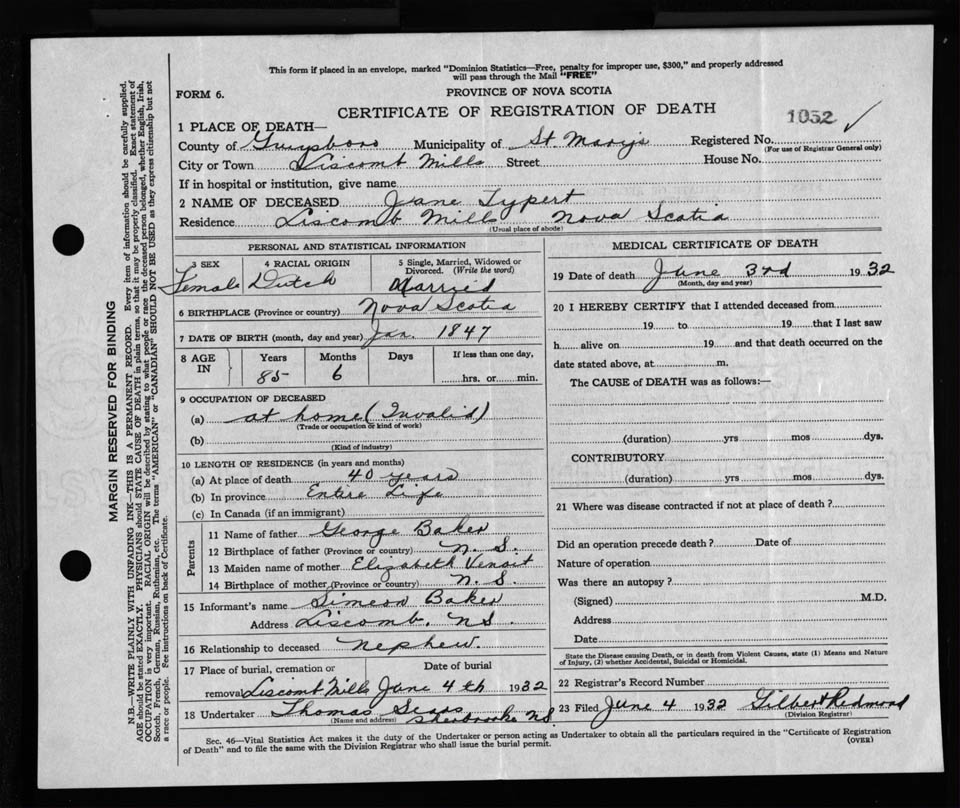 This form if placed in an envelope, marked "Dominion Statistics—Free, penalty for improper use, $300," and properly addressed
will pass through the Mail "FREE"
FORM 6.
PROVINCE OF NOVA SCOTIA
CERTIFICATE OF REGISTRATION OF DEATH
1052 ✓
1 PLACE OF DEATH—
County of Guysboro Municipality of St. Mary's Registered No.
(For use of Registrar General only)
City or Town Liscomb Mills Street House No.
If in hospital or institution, give name
2 NAME OF DECEASED Jane Typert
Residence Liscomb Mills Nova Scotia
(Usual place of abode)
PERSONAL AND STATISTICAL INFORMATION
3 SEX 4 RACIAL ORIGIN 5 Single, Married, Widowed or
Divorced. (Write the word)
Female Dutch Married
6 BIRTHPLACE (Province or country) Nova Scotia
7 DATE OF BIRTH (month, day and year) Jan. 1847
8 AGE IN Years Months Days If less than one day,
85 6 hrs. or min.
9 OCCUPATION OF DECEASED
(a) at home (Invalid)
(Trade or occupation or kind of work)
(b)
(Kind of industry)
10 LENGTH OF RESIDENCE (in years and months)
(a) At place of death 40 years
(b) In province Entire Life
(c) In Canada (if an immigrant)
Parents
11 Name of father George Baker
12 Birthplace of father (Province or country) N. S.
13 Maiden name of mother Elizabeth Venoit
14 Birthplace of mother (Province or country) N. S.
15 Informant's name Simeon Baker
Address Liscomb, NS.
16 Relationship to deceased nephew.
17 Place of burial, cremation or Date of burial
removal Liscomb Mills June 4th 1932
18 Undertaker Thomas Sears Sherbrooke NS.
(Name and address)
MEDICAL CERTIFICATE OF DEATH
19 Date of death June 3rd 1932
(Month, day and year)
20 I HEREBY CERTIFY that I attended deceased from
19 to 19 that I last saw
h alive on 19 and that death occurred on the
date stated above, at m.
The CAUSE of DEATH was as follows:—
(duration) yrs mos dys.
CONTRIBUTORY
(duration) yrs mos dys.
21 Where was disease contracted if not at place of death?
Did an operation precede death? Date of
Nature of operation
Was there an autopsy?
(Signed) M.D.
Address
Date
State the Disease causing Death, or in death from Violent Causes, state (1) Means and Nature
of Injury, (2) whether Accidental, Suicidal or Homicidal.
22 Registrar's Record Number
23 Filed June 4 1932 Gilbert Redmond
(Division Registrar)
Sec. 46—Vital Statistics Act makes it the duty of the Undertaker or person acting as Undertaker to obtain all the particulars required in the "Certificate of Registration
of Death" and to file the same with the Division Registrar who shall issue the burial permit.
(OVER)
MARGIN RESERVED FOR BINDING
N.B.—WRITE PLAINLY WITH UNFADING INK—THIS IS A PERMANENT RECORD. Every item of information should be carefully supplied.
AGE should be stated EXACTLY. PHYSICIANS should STATE CAUSE OF DEATH in plain terms, so that it may be properly classified. Exact statement of
OCCUPATION is very important. RACIAL ORIGIN will be described by stating to what people or race the deceased person belonged, whether English, Irish,
Scotch, French, German, Russian, Ruthenian, etc. The terms "AMERICAN" or "CANADIAN" SHOULD NOT BE USED as they express citizenship but not
a race or people. See instructions on back of Certificate.